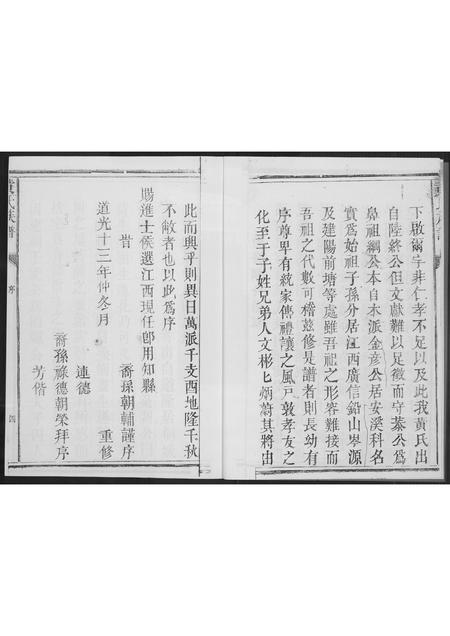 下啟爾宇非仁孝不足以及此我黃氏出
自陸終公但文獻難以足徵而守蓁公爲
鼻祖綱公本自木派金彥公居安溪科名
實爲始祖子孫分居江西廣信鉛山岑源
及建陽前塘等處雖吾祖之形容難接而
吾祖之代數可稽茲修是譜者則長幼有
序尊卑有統家傳禮讓之風戸敦孝友之
化至于子姓兄弟人文彬匕炳蔚其將由
此而興乎則異日萬派千支酉地隆千秋
不敝者也以此爲序
賜進士候選江西現任卽用知縣
旹 裔孫朝輔謹序
道光十三年仲冬月 重修
連德
裔孫祿德朝榮拜序
芳偕
黃氏族譜 序 四